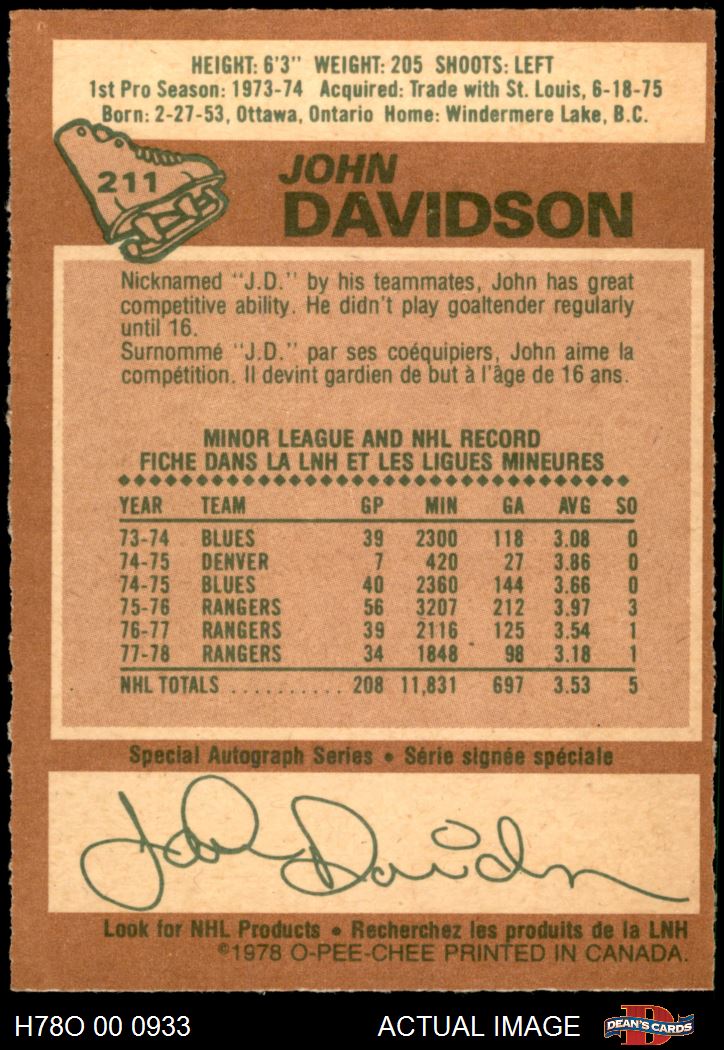 HEIGHT: 6'3" WEIGHT: 205 SHOOTS: LEFT
1st Pro Season: 1973-74 Acquired: Trade with St. Louis, 6-18-75
Born: 2-27-53, Ottawa, Ontario Home: Windermere Lake, B.C.
211
JOHN
DAVIDSON
Nicknamed "J.D." by his teammates, John has great
competitive ability. He didn't play goaltender regularly
until 16.
Surnommé "J.D." par ses coéquipiers, John aime la
compétition. Il devint gardien de but à l'âge de 16 ans.
MINOR LEAGUE AND NHL RECORD
FICHE DANS LA LNH ET LES LIGUES MINEURES
YEAR TEAM GP MIN GA AVG SO
73-74 BLUES 39 2300 118 3.08 0
74-75 DENVER 7 420 27 3.86 0
74-75 BLUES 40 2360 144 3.66 0
75-76 RANGERS 56 3207 212 3.97 3
76-77 RANGERS 39 2116 125 3.54 1
77-78 RANGERS 34 1848 98 3.18 1
NHL TOTALS .......... 208 11,831 697 3.53 5
Special Autograph Series • Série signée spéciale
John Davidson
Look for NHL Products • Recherchez les produits de la LNH
©1978 O-PEE-CHEE PRINTED IN CANADA.
H78O 00 0933 ACTUAL IMAGE DEAN'S CARDS